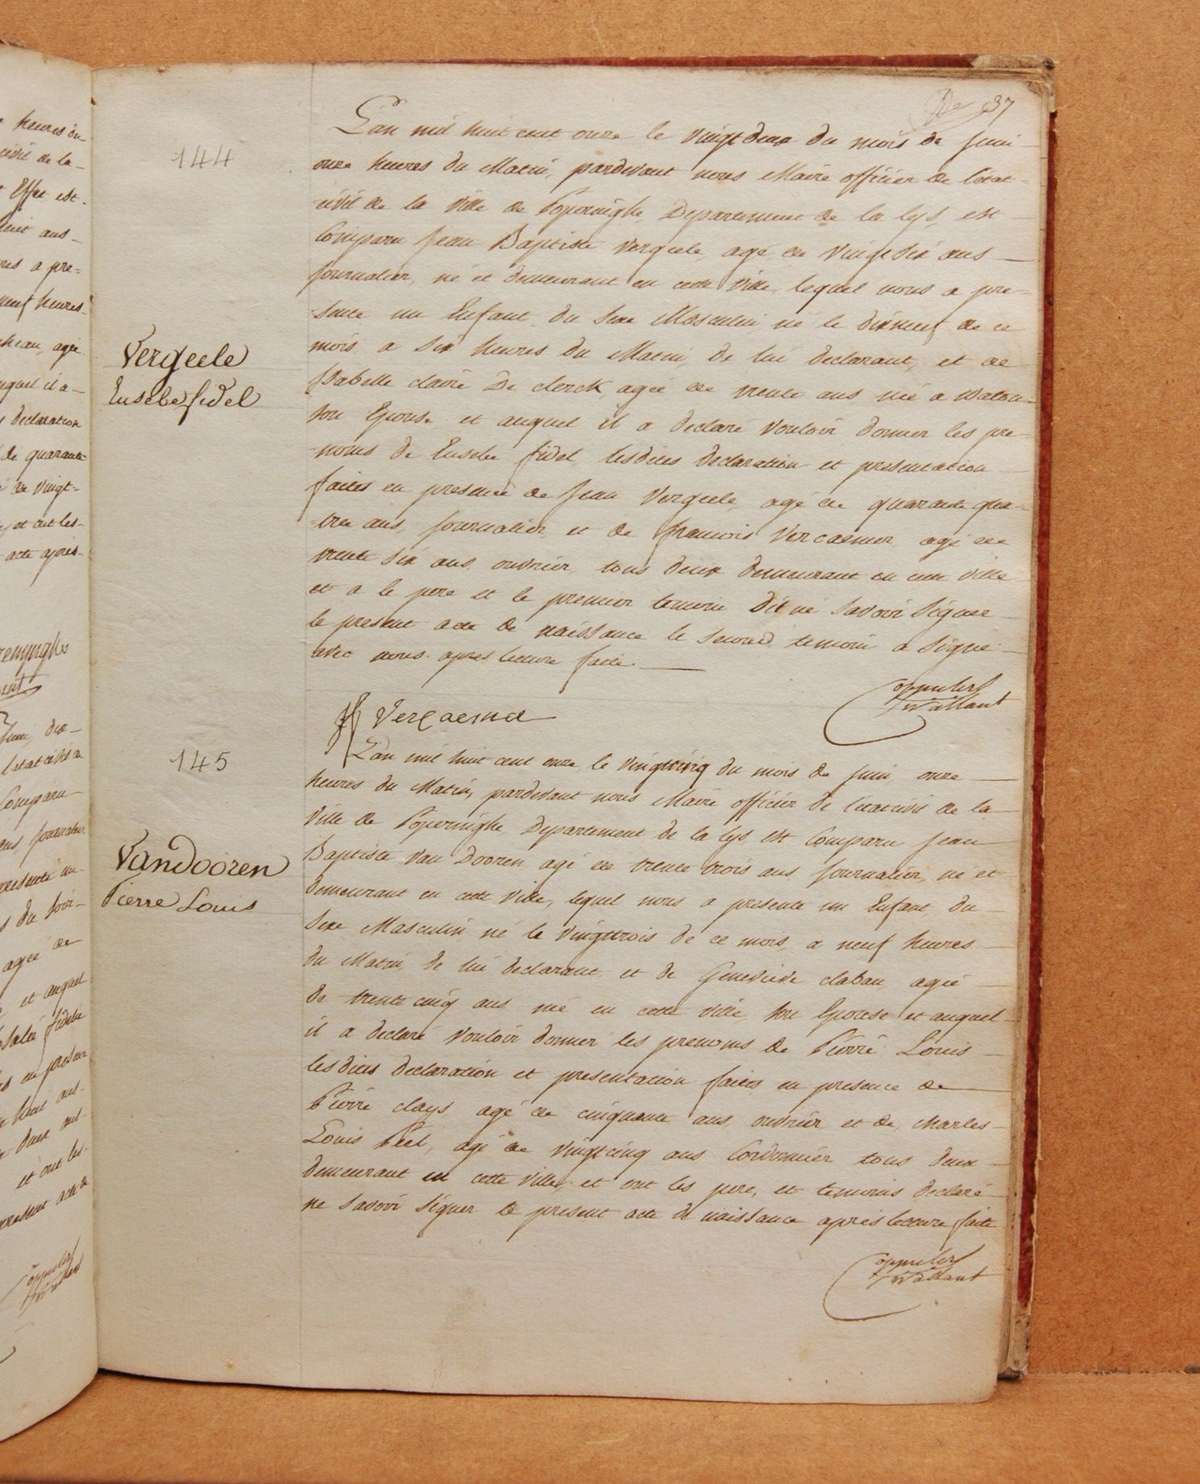 37
144
L'an mil huit cent onze le vingt deux du mois de juin
onze heures du Matin, pardevant nous Maire officier de l'etat
civil de la Ville de Poperinghe Departement de la Lys, est
Comparu Jean Baptiste Vergeele, agé de vingt six ans
journalier, né et demeurant en cette Ville, lequel nous a pre-
senté un Enfant du Sexe Masculin né le dixneuf de ce
mois a six heures du Matin, de lui declarant, et de
Isabelle claire De clerck, agée de trente ans née a Watou
son Epouse et auquel il a declaré vouloir donner les pre-
noms de Eusebe fidel, lesdites declaration et presentation
faites en presence de Jean Vergeele, agé de quarante qua-
tre ans, journalier, et de francois Vercaemer agé de
trente six ans ouvrier tous deux demeurant en cette Ville
et a le pere et le premier temoin Dit ne savoir signer
le present acte de naissance le second temoin a signé
avec nous apres lecture faite
Vergeele
Eusebe fidel
Vercaemer
145
L'an mil huit cent onze le vingtcinq du mois de juin onze
heures du Matin, pardevant nous Maire officier de l'etatcivil de la
Ville de Poperinghe Departement de la Lys est Comparu Jean
Baptiste Van Dooren agé de trente trois ans journalier, né et
demeurant en cette Ville, lequel nous a presenté un Enfant du
Sexe Masculin né le vingttrois de ce mois a neuf heures
du Matin de lui declarant et de Genevieve claban agée
de trente cinq ans née en cette Ville son Epouse et auquel
il a declaré vouloir donner les prenoms de Pierre Louis
lesdites declaration et presentation faites en presence de
Pierre clays agé de cinquante ans, ouvrier et de charles
Louis Peel, agé de vingtcinq ans Cordonnier tous deux
demeurant en cette Ville, et ont les pere, et temoins declaré
ne savoir signer le present acte de naissance apres lecture faite
Vandooren
Pierre Louis